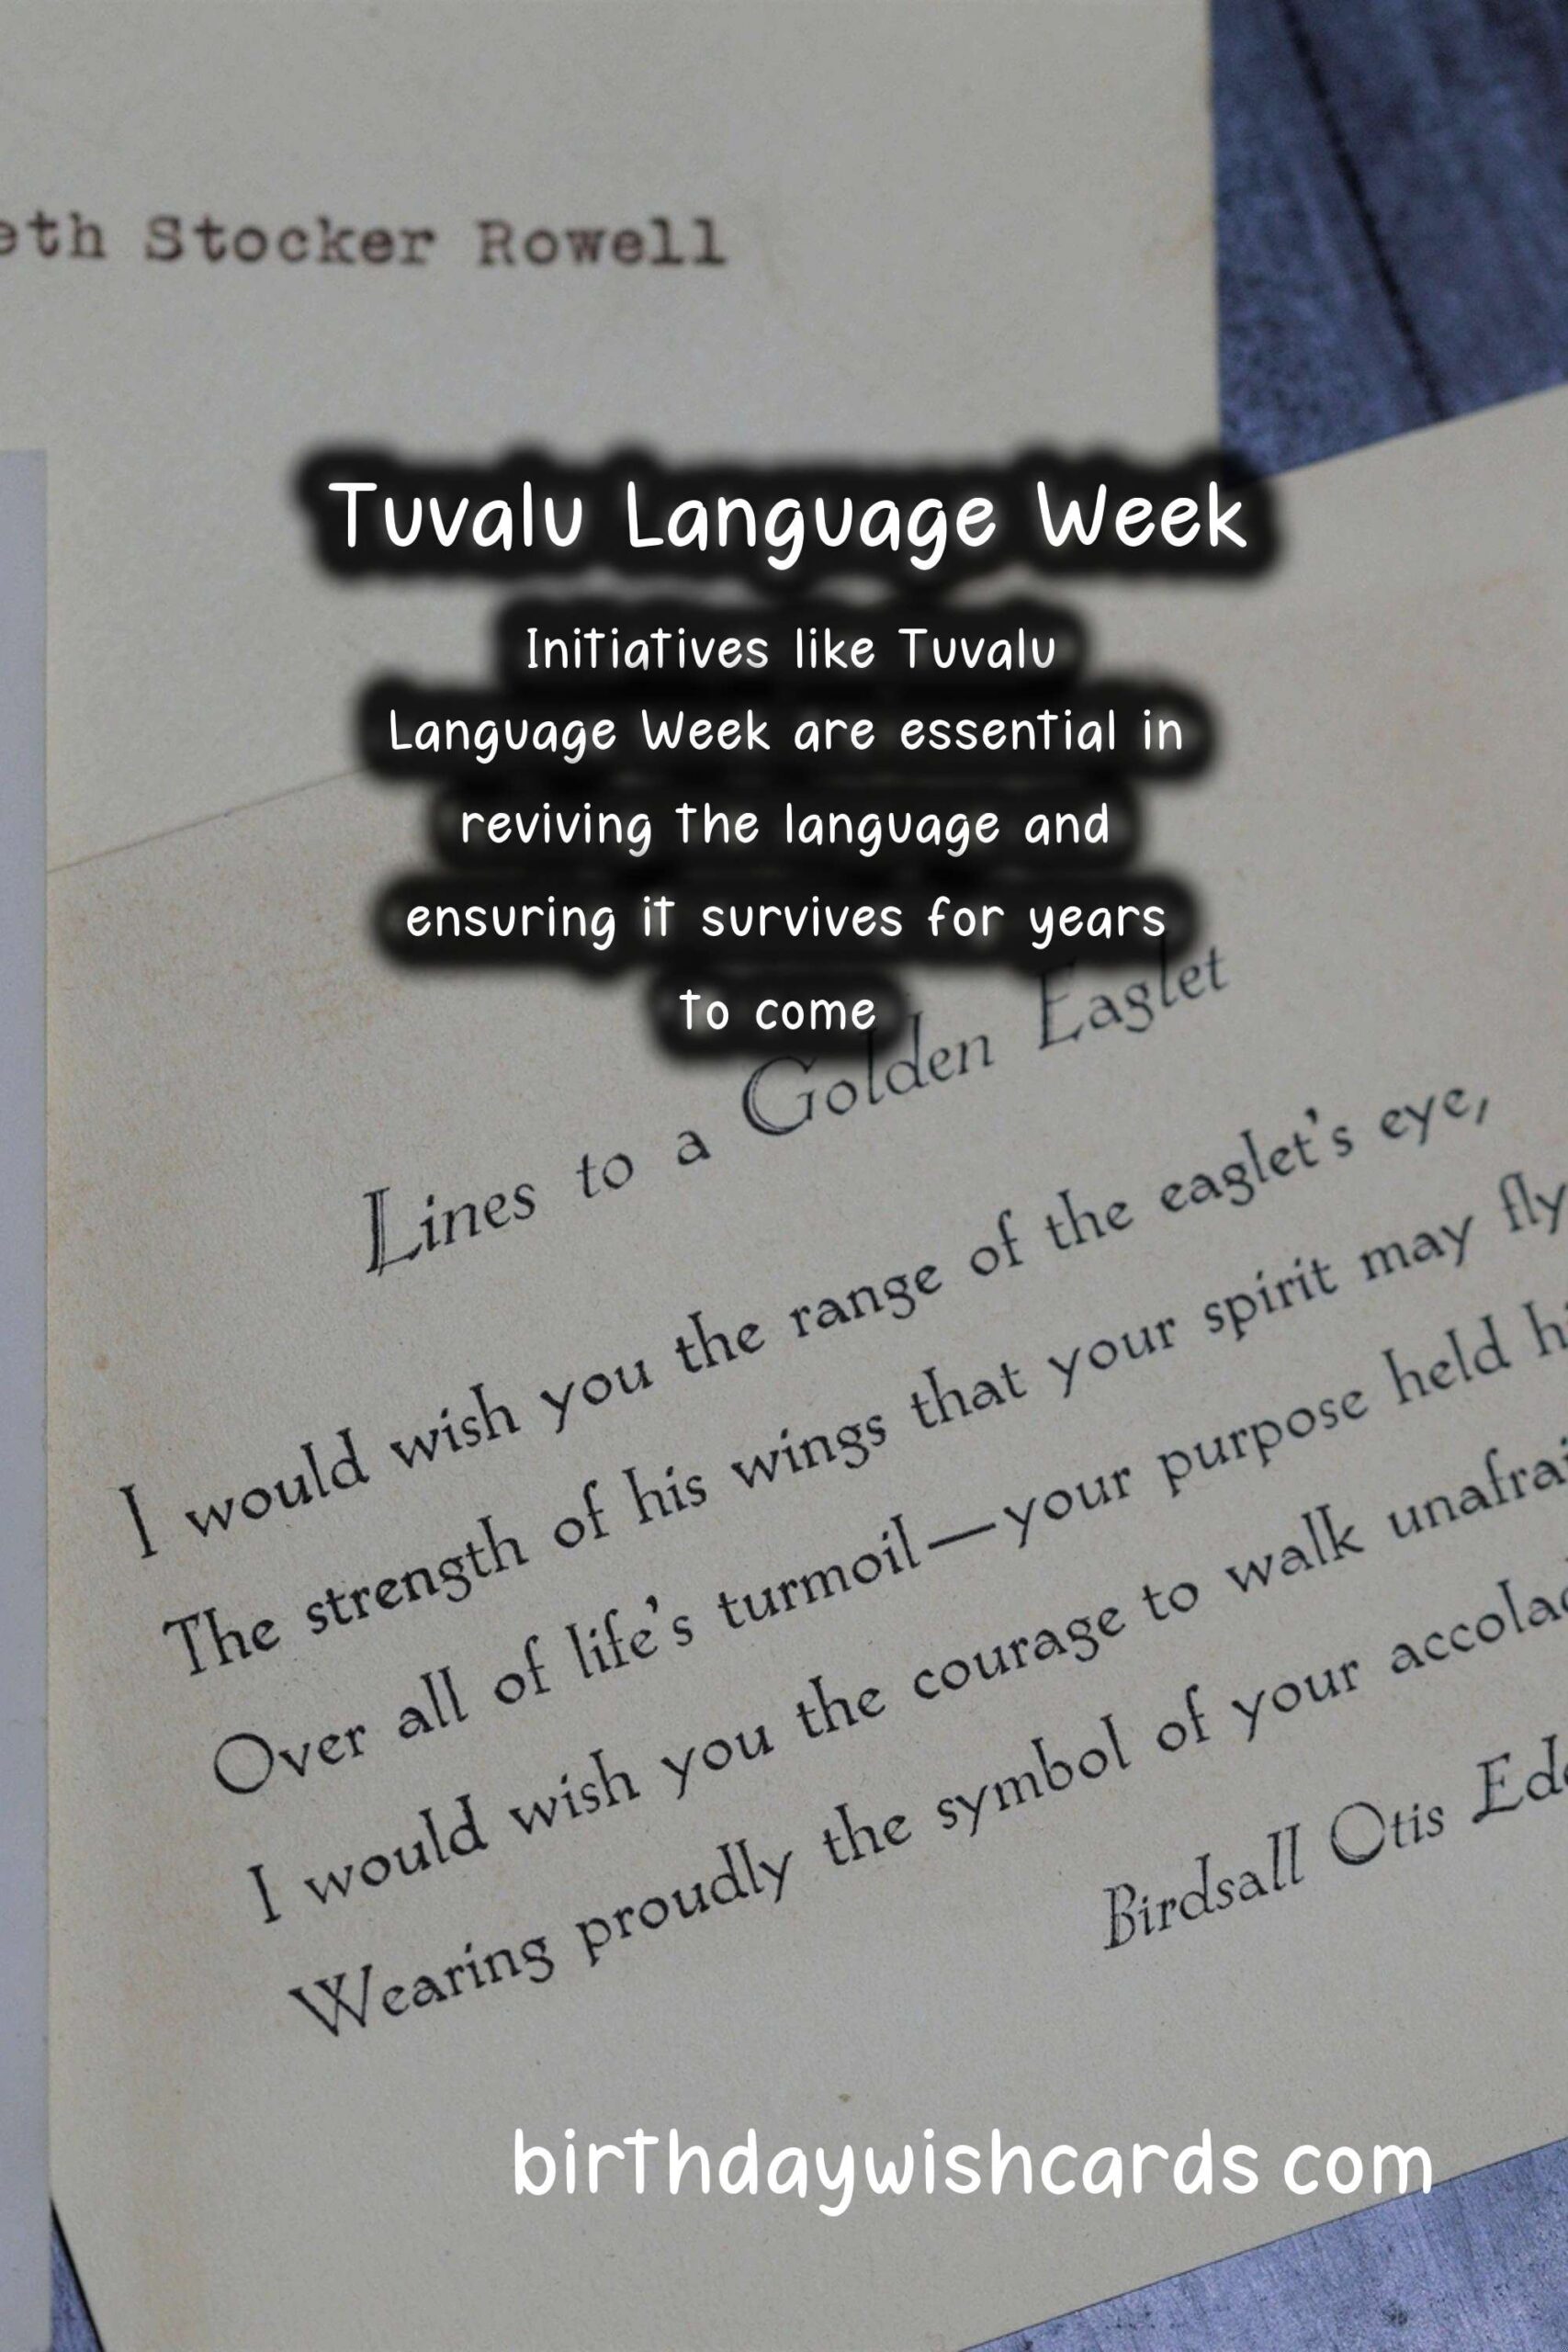 Stocker Rowell
Tuvalu Language Week
Initiatives like Tuvalu
Language Week are essential in
reviving the language and
ensuring it survives for years
to come
Lines to a Golden Eaglet
I would wish you the range of the eaglet's eye,
The strength of his wings that your spirit may fly
Over all of life's turmoil—your purpose held
I would wish you the courage to walk
Wearing proudly the symbol of your
Birdsall Otis
birthdaywishcards com